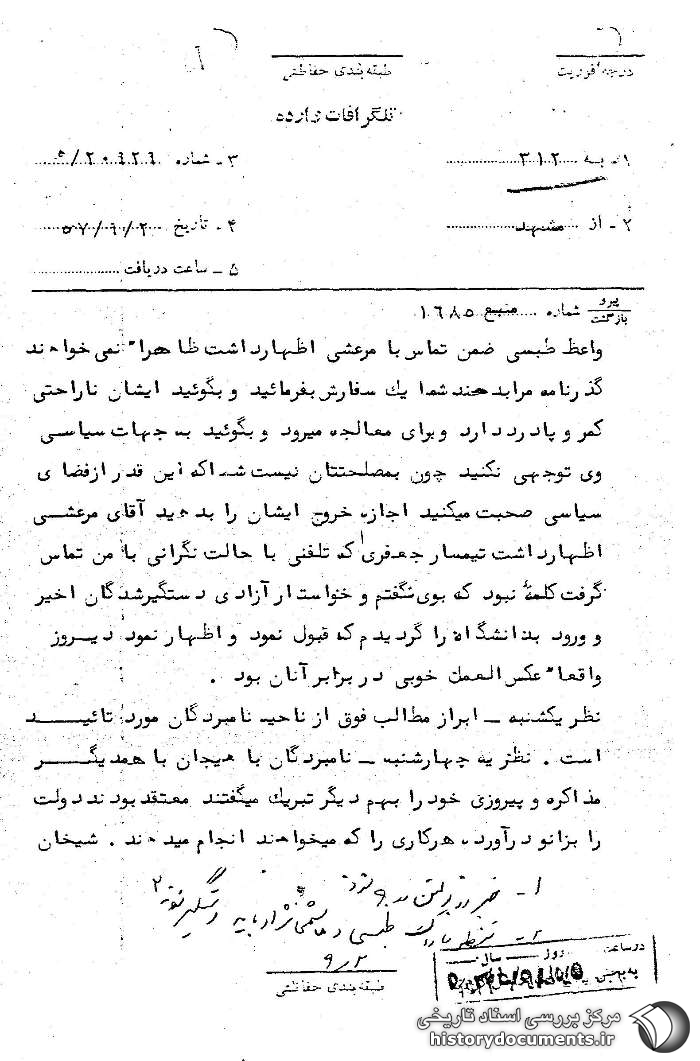 درجه فوریت
طبقه بندی حفاظتی
تلگرافات وارده
۱ـ به ۳۱۲
۳ـ شماره
۲ـ از مشهد
۴ـ تاریخ ۵۷/۹/۲
۵ ـ ساعت دریافت
پیرو
بازگشت
شماره منبع ۱۶۸۵
واعظ طبسی ضمن تماس با مرعشی اظهارداشت ظاهرا" نمی خواهند
گذرنامه مرا بدهند شما یك سفارش بفرمائید و بگوئید ایشان ناراحتی
کمر و پادرد دارد و برای معالجه میرود و بگوئید به جهات سیاسی
وی توجهی نکنید چون بمصلحتتان نیست شما که این قدر از فضای
سیاسی صحبت میکنید اجازه خروج ایشان را بدهید آقای مرعشی
اظهارداشت تیمسار جعفری که تلفنی با حالت نگرانی با من تماس
گرفت کلمهٔ نبود که بوی نگفتم و خواستار آزادی دستگیرشدگان اخیر
و ورود بدانشگاه را گردیدم که قبول نمود و اظهار نمود دیروز
واقعا" عکس العمل خوبی در برابر آنان بود .
نظر یکشنبه ـ ابراز مطالب فوق از ناحیه نامبردگان مورد تائید
است . نظریه چهارشنبه ـ نامبردگان با هیجان با همدیگر
مذاکره و پیروزی خود را بهم دیگر تبریك میگفتند معتقد بودند دولت
را بزانو درآورده هرکاری را که میخواهند انجام میدهند . شیخان
۱ـ
۲ـ طبسی و هاشمی نژاد
۹/۲
طبقه بندی حفاظتی
در ساعت روز سال
به بخش
مرکز بررسی اسناد تاریخی
historydocuments.ir